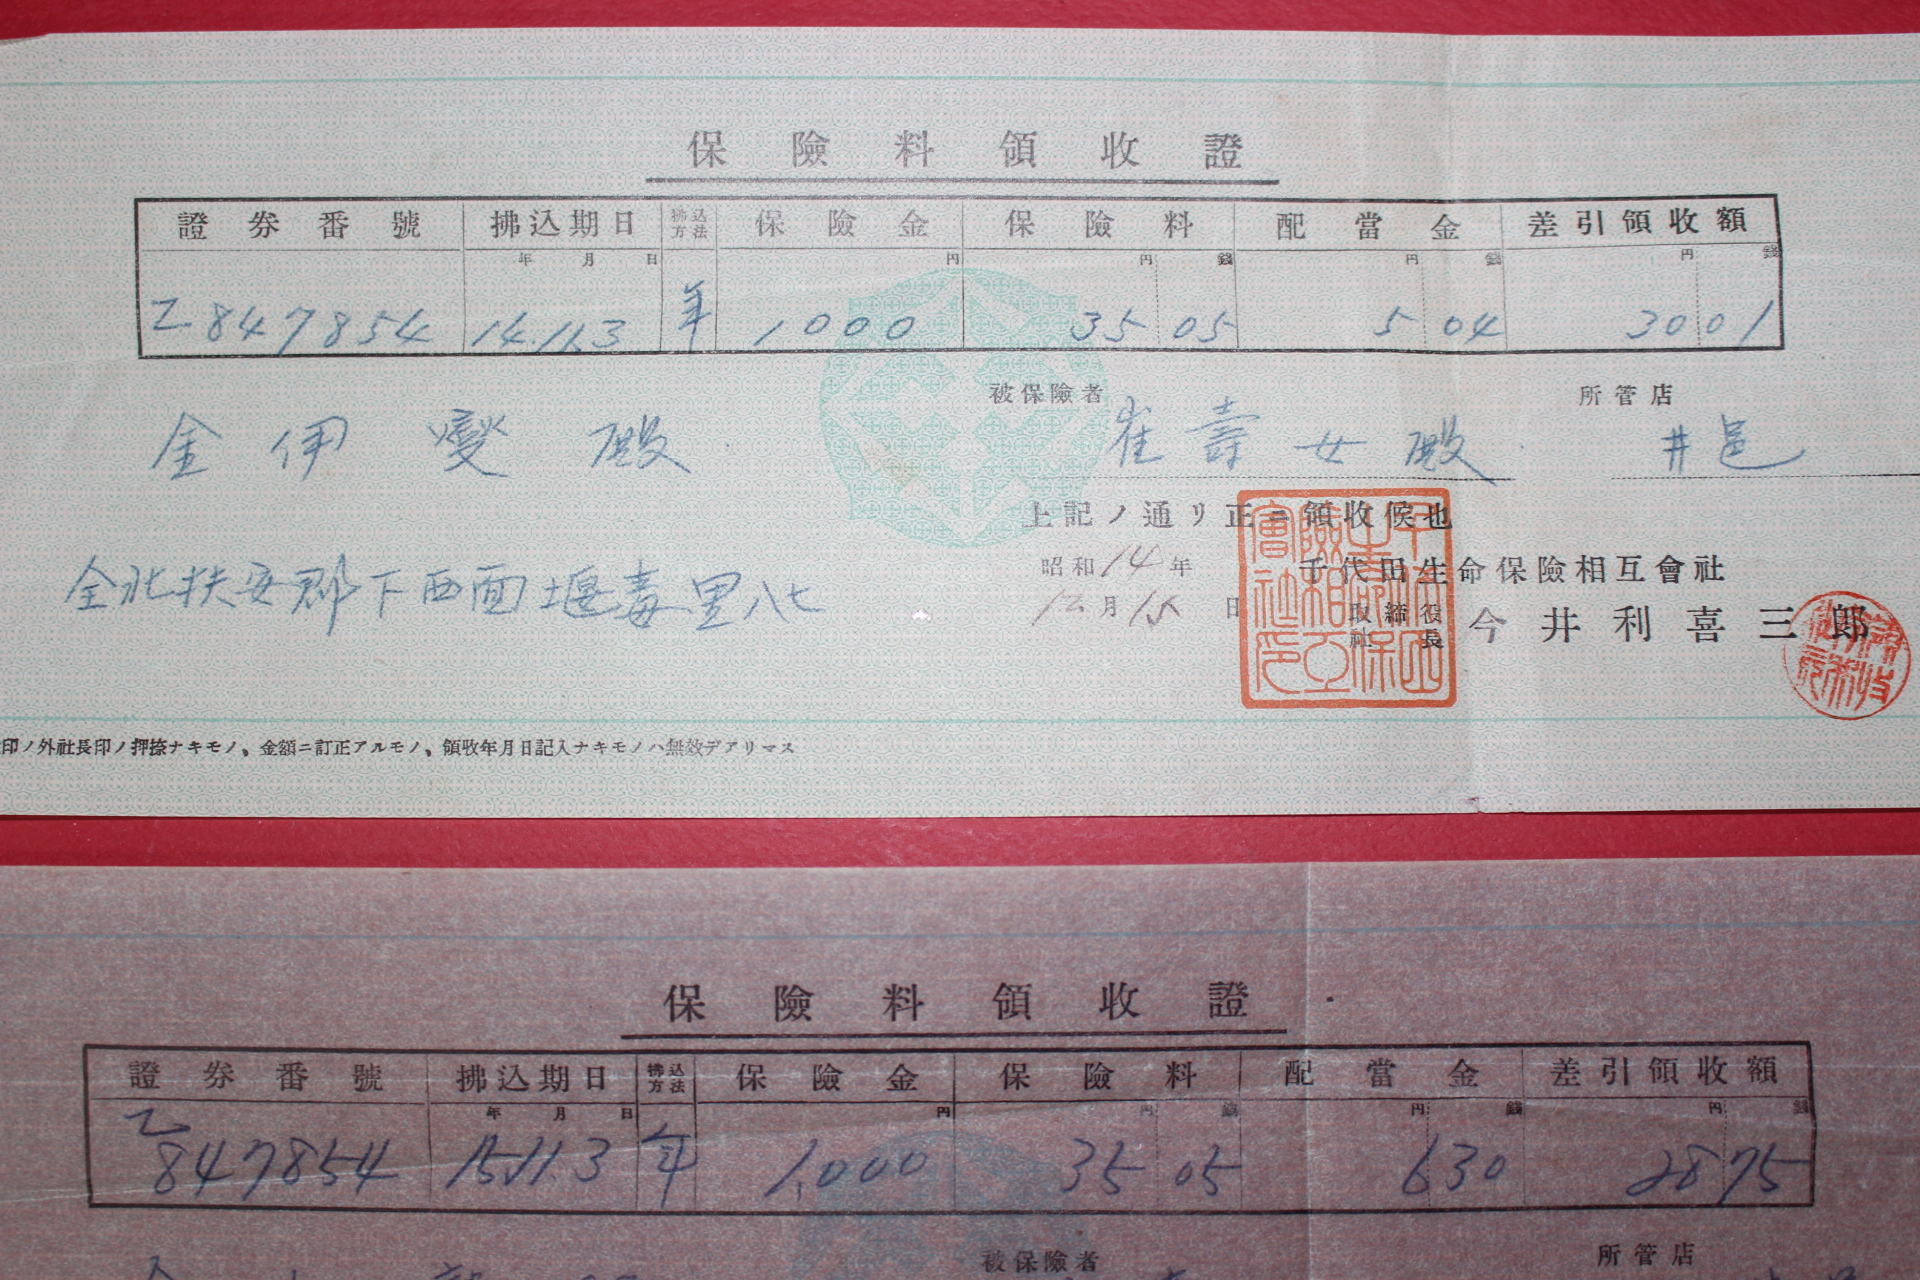 保險料領收證
證券番號 拂込期日 拂込方法 保險金 保險料 配當金 差引領收額
年 月 日 円 円 錢 円 錢 円 錢
乙847854 14.11.3 年 1000 35 05 5 04 30 01
被保險者 所管店
金伊燮殿 崔壽女殿 井邑
上記ノ通リ正ニ領收候也
昭和14年
千代田生命保險相互會社
12月15日
取締役社長 今井利喜三郎
全北扶安郡下西面堰毒里八七
印ノ外社長印ノ押捺ナキモノ、金額ニ訂正アルモノ、領收年月日記入ナキモノハ無效デアリマス
保險料領收證
證券番號 拂込期日 拂込方法 保險金 保險料 配當金 差引領收額
年 月 日 円 円 錢 円 錢 円 錢
乙847854 15.11.3 年 1,000 35 05 6 30 28 75
被保險者 所管店